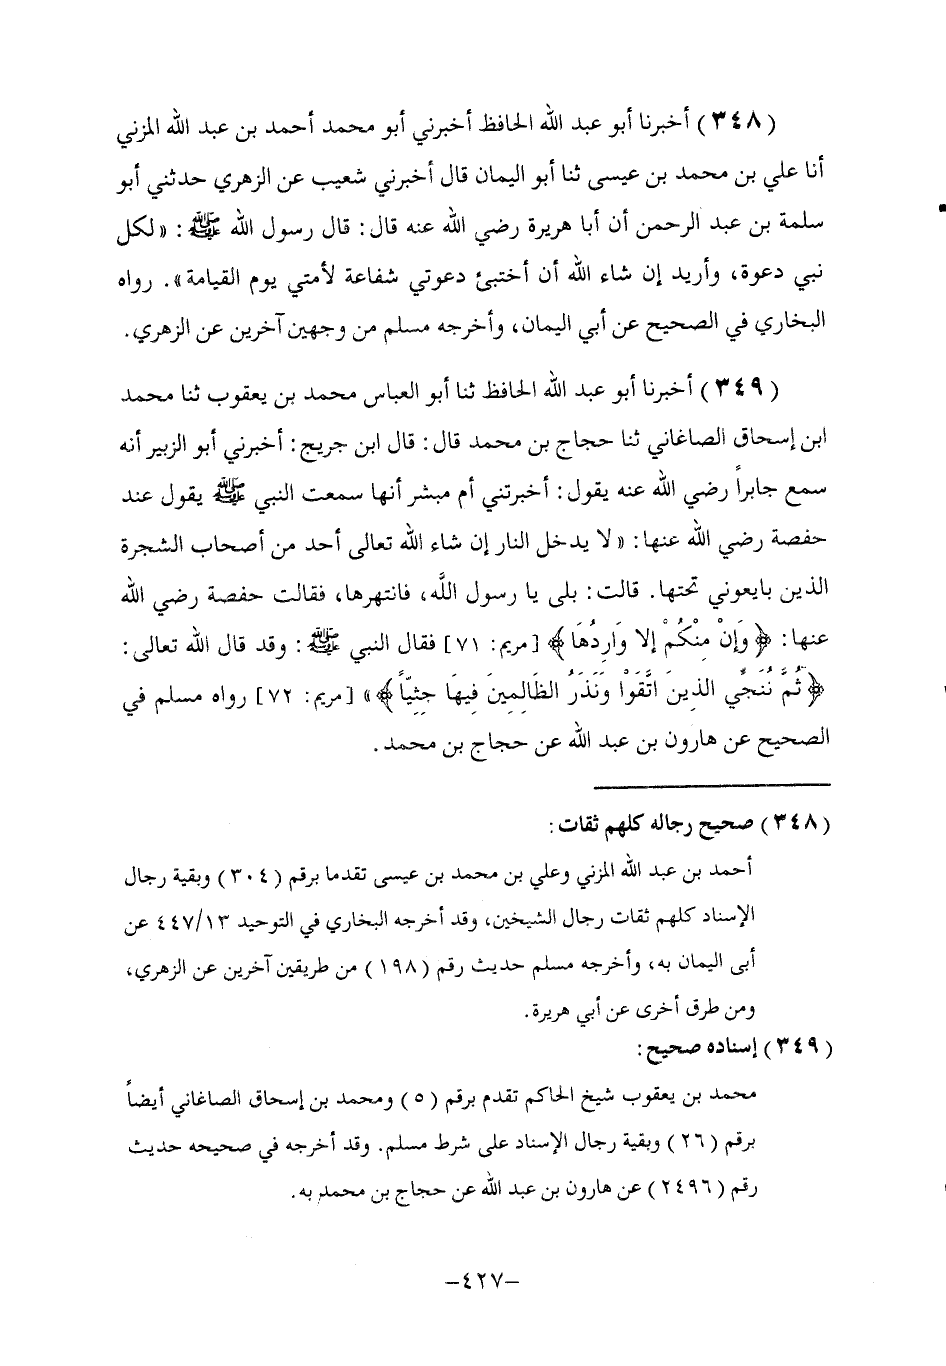 (٣٤٨) أخبرنا أبو عبد الله الحافظ أخبرني أبو محمد أحمد بن عبد الله المزني
أنا علي بن محمد بن عيسى ثنا أبو اليمان قال أخبرني شعيب عن الزهري حدثني أبو
سلمة بن عبد الرحمن أن أبا هريرة رضي الله عنه قال: قال رسول الله ﷺ: «لكل
نبي دعوة، وأريد إن شاء الله أن أختبئ دعوتي شفاعة لأمتي يوم القيامة». رواه
البخاري في الصحيح عن أبي اليمان، وأخرجه مسلم من وجهين آخرين عن الزهري.
(٣٤٩) أخبرنا أبو عبد الله الحافظ ثنا أبو العباس محمد بن يعقوب ثنا محمد
ابن إسحاق الصاغاني ثنا حجاج بن محمد قال: قال ابن جريج: أخبرني أبو الزبير أنه
سمع جابراً رضي الله عنه يقول: أخبرتني أم مبشر أنها سمعت النبي ﷺ يقول عند
حفصة رضي الله عنها: «لا يدخل النار إن شاء الله تعالى أحد من أصحاب الشجرة
الذين بايعوني تحتها. قالت: بلى يا رسول اللَّه، فانتهرها، فقالت حفصة رضي الله
عنها: ﴿وَإِنْ مِنْكُمْ إلا وَارِدُهَا﴾ [مريم: ٧١] فقال النبي ﷺ: وقد قال الله تعالى:
﴿ثُمَّ نُنَجِّي الذينَ اتَّقَوْا وَنَذَرُ الظَالِمِينَ فِيهَا جِثِيّاً﴾» [مريم: ٧٢] رواه مسلم في
الصحيح عن هارون بن عبد الله عن حجاج بن محمد.
(٣٤٨) صحيح رجاله كلهم ثقات:
أحمد بن عبد الله المزني وعلي بن محمد بن عيسى تقدما برقم (٣٠٤) وبقية رجال
الإسناد كلهم ثقات رجال الشيخين، وقد أخرجه البخاري في التوحيد ٤٤٧/١٣ عن
أبى اليمان به، وأخرجه مسلم حديث رقم (١٩٨) من طريقين آخرين عن الزهري،
ومن طرق أخرى عن أبي هريرة.
(٣٤٩) إسناده صحيح:
محمد بن يعقوب شيخ الحاكم تقدم برقم (٥) ومحمد بن إسحاق الصاغاني أيضاً
برقم (٢٦) وبقية رجال الإسناد على شرط مسلم. وقد أخرجه في صحيحه حديث
رقم (٢٤٩٦) عن هارون بن عبد الله عن حجاج بن محمد به.
-٤٢٧-